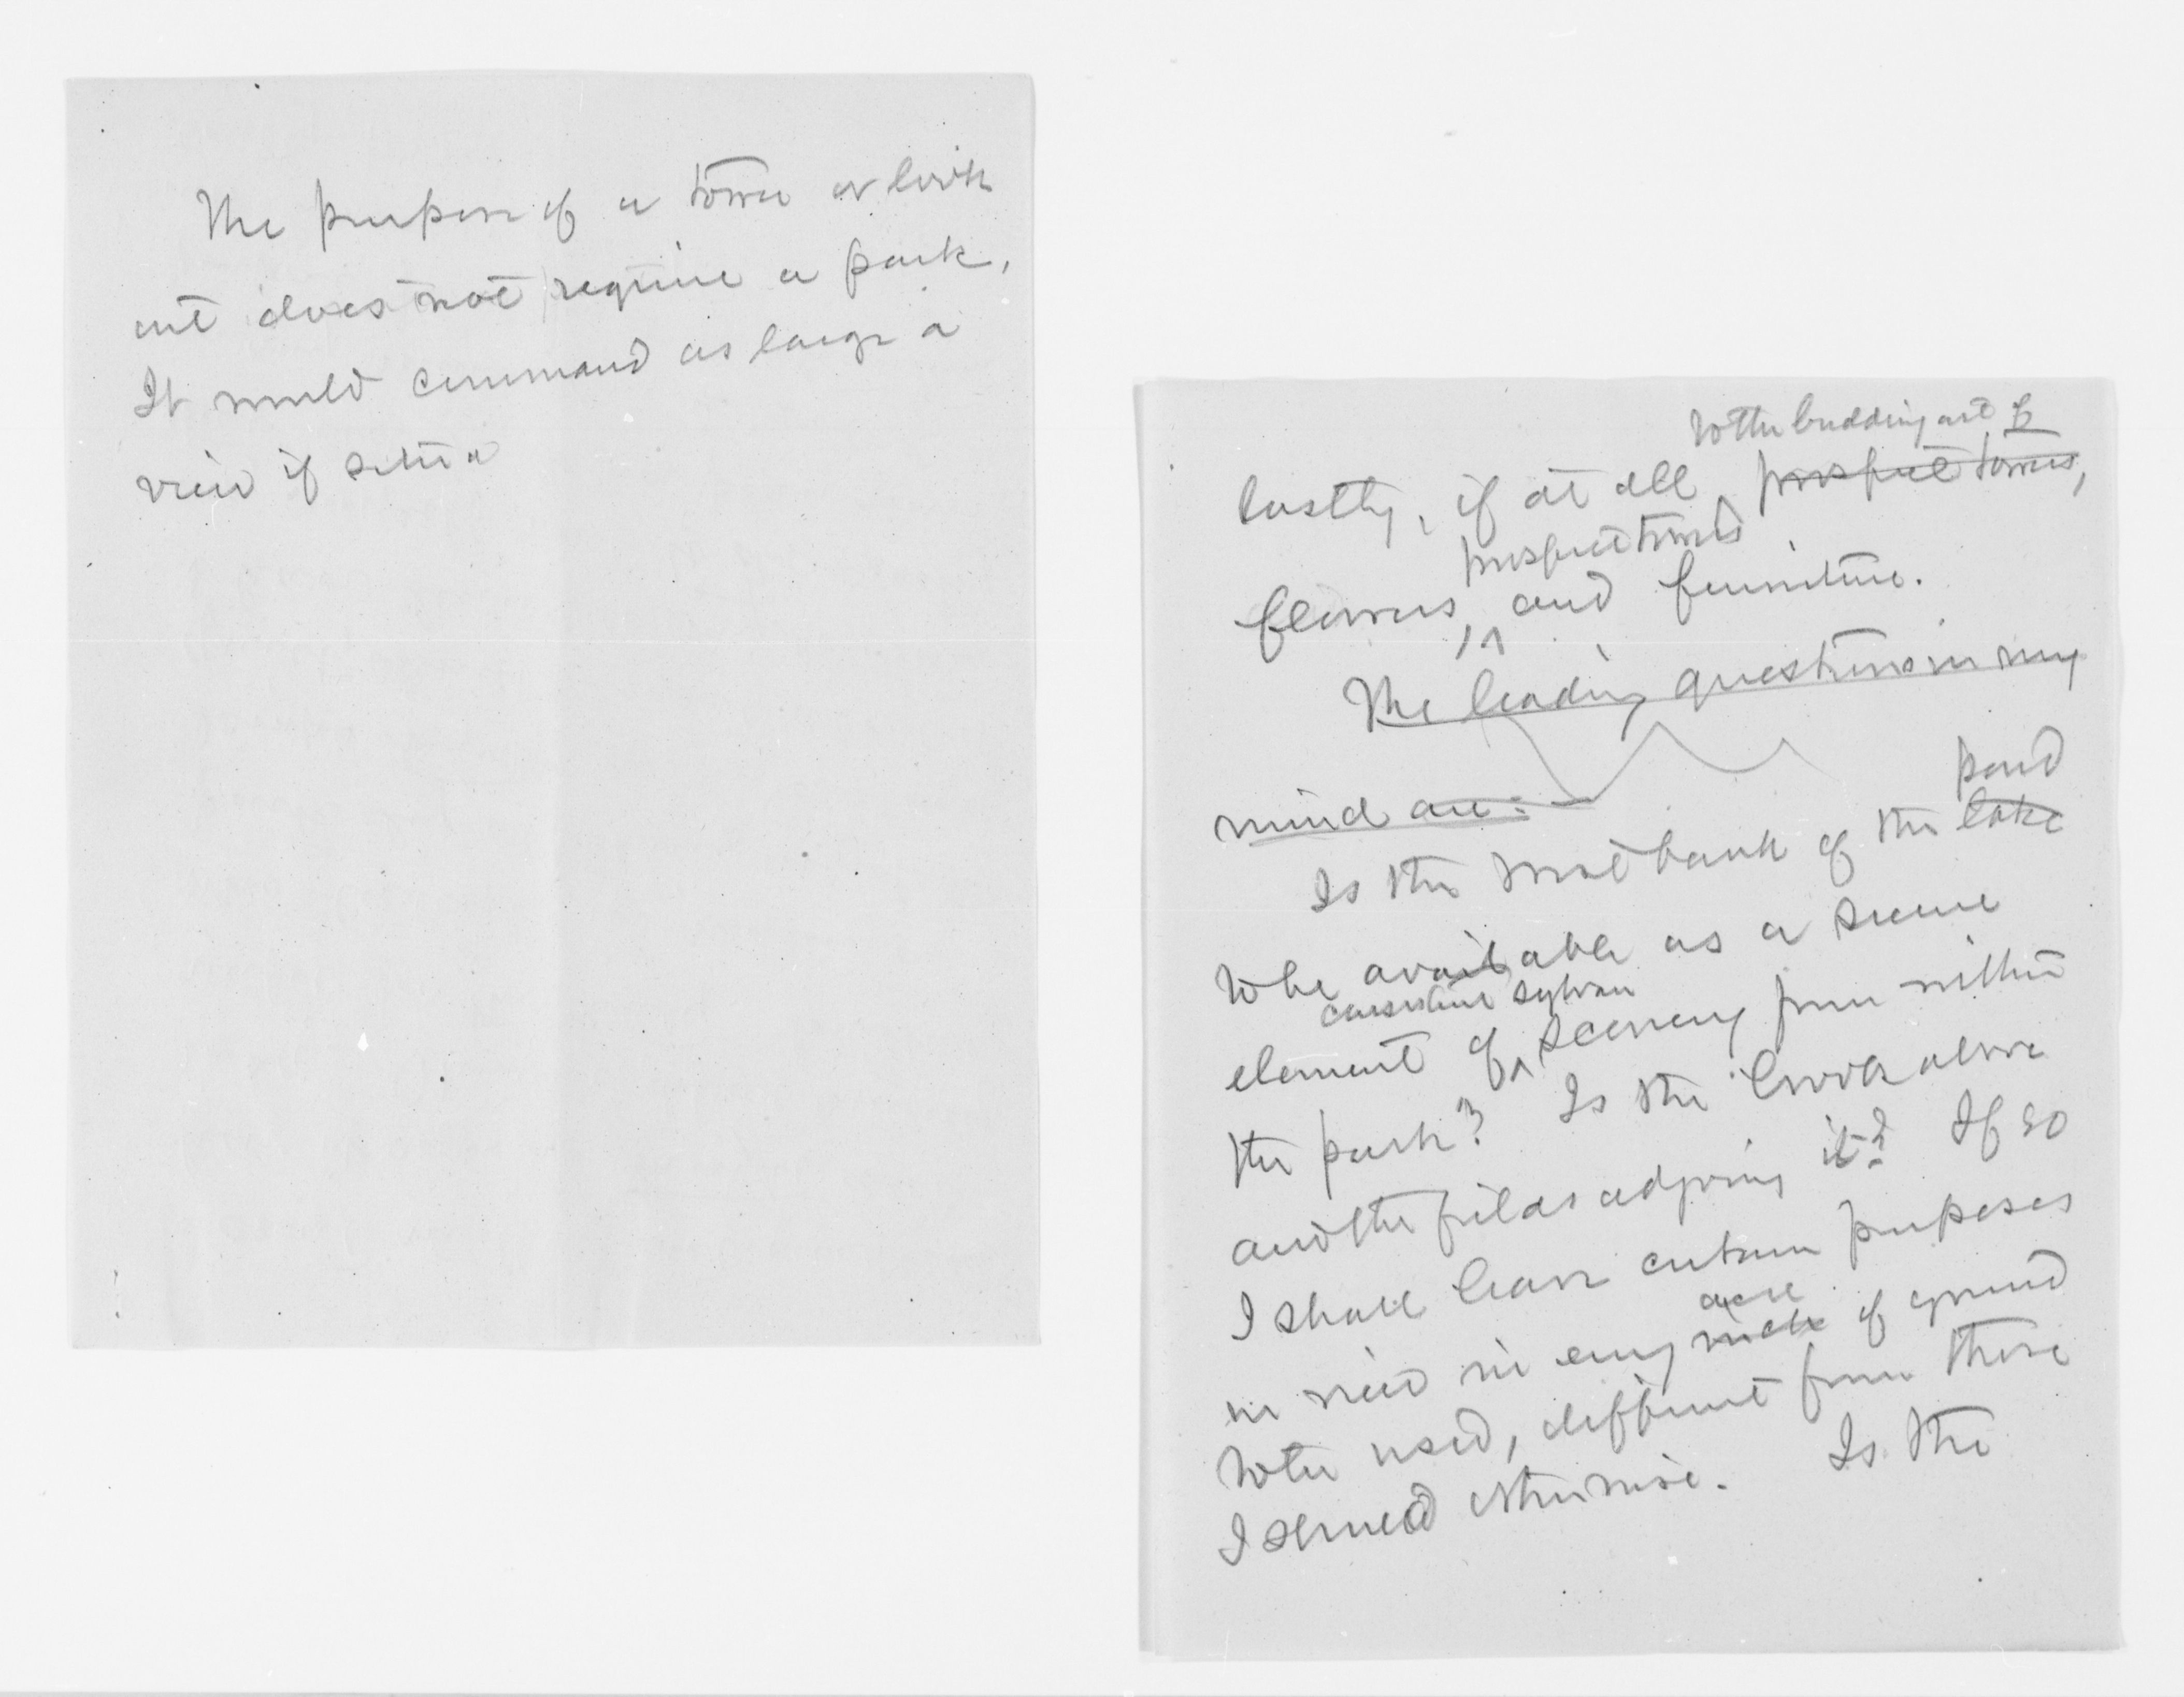 The purpose of a tower or look
out does not require a park,
It would command as large a
view if set in a
to the budding out of
lastly, if at all prospect towers,
prospect towers
flowers, and furniture.
The leading questions in my
mind are:—
pond
Is the west bank of the lake
to be available as a scene
sylvan
element of scenery from within
the park? Is the brook above
and the fields adjoining it? If so
I shall have certain purposes
acre
in view in every inch of ground
to be used, different from those
I should otherwise. Is the